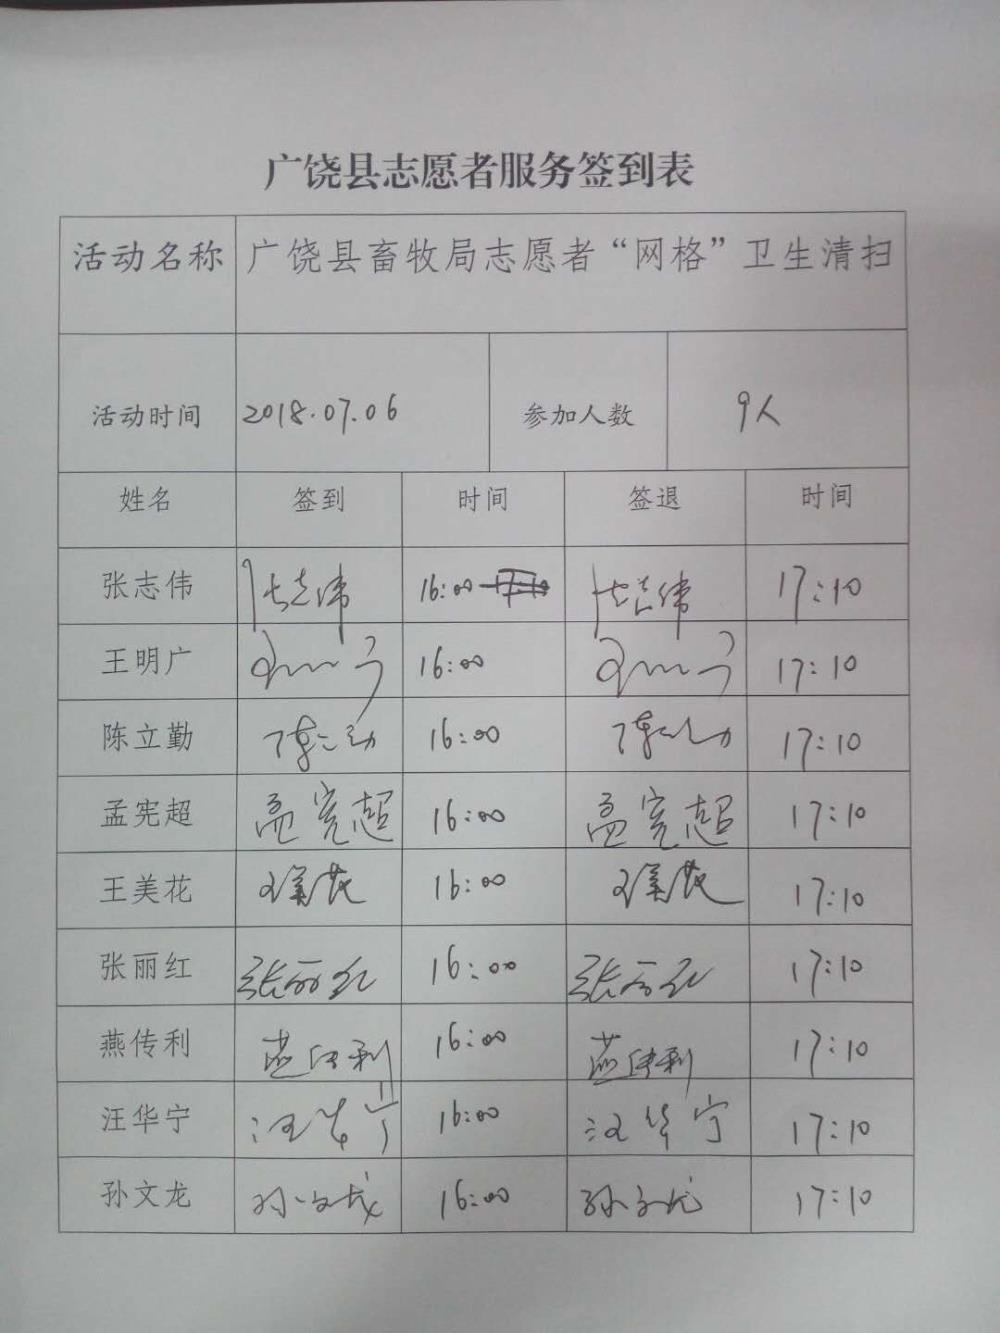 广饶县志愿者服务签到表
活动名称 广饶县畜牧局志愿者“网格”卫生清扫
活动时间 2018.07.06 参加人数 9人
姓名 签到 时间 签退 时间
张志伟 张志伟 16:00 张志伟 17:10
王明广 16:00 17:10
陈立勤 陈立勤 16:00 陈立勤 17:10
孟宪超 孟宪超 16:00 孟宪超 17:10
王美花 王美花 16:00 王美花 17:10
张丽红 张丽红 16:00 张丽红 17:10
燕传利 燕传利 16:00 燕传利 17:10
汪华宁 汪华宁 16:00 汪华宁 17:10
孙文龙 孙文龙 16:00 孙文龙 17:10